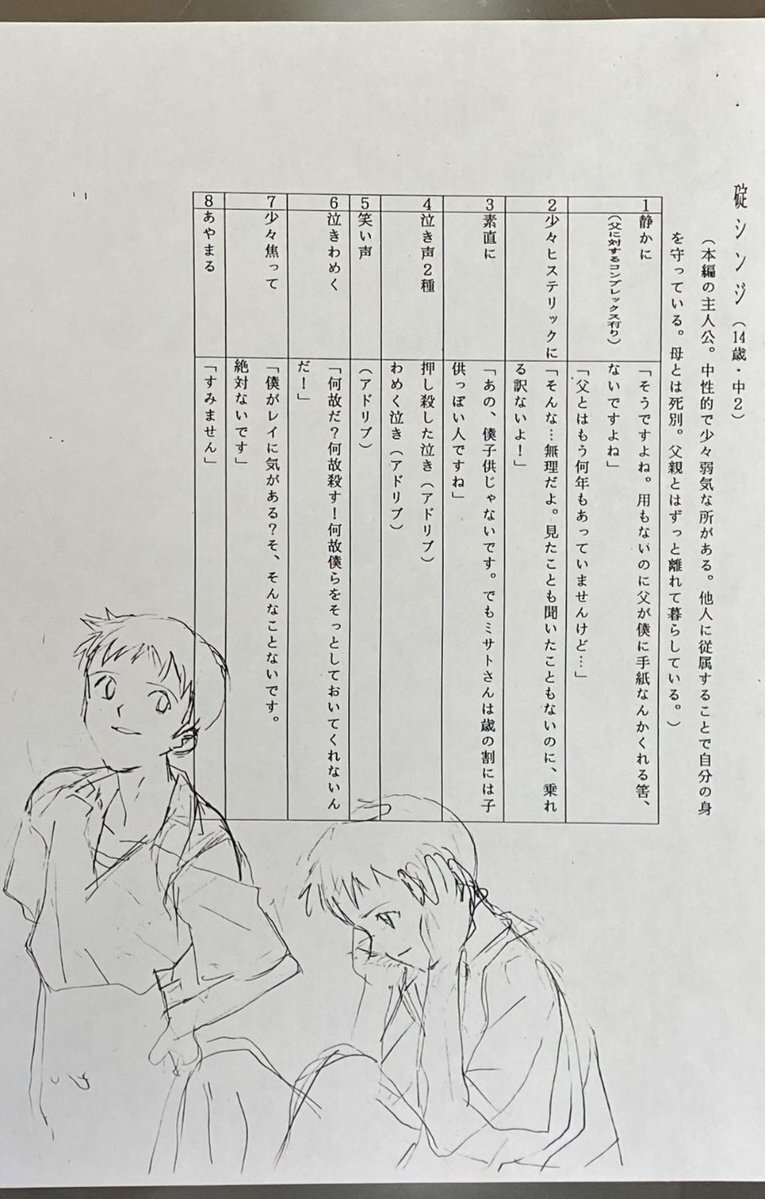 碇シンジ(14歳・中2)
(本編の主人公。中性的で少々弱気な所がある。他人に従属することで自分の身
を守っている。母とは死別。父親とはずっと離れて暮らしている。)
1 静かに
(父に対するコンプレックス有り)
「そうですよね。用もないのに父が僕に手紙なんかくれる筈、
ないですよね」
「父とはもう何年もあっていませんけど…」
2 少々ヒステリックに
「そんな…無理だよ。見たことも聞いたこともないのに、乗れ
る訳ないよ!」
3 素直に
「あの、僕子供じゃないです。でもミサトさんは歳の割には子
供っぽい人ですね」
4 泣き声2種
押し殺した泣き(アドリブ)
わめく泣き(アドリブ)
5 笑い声
(アドリブ)
6 泣きわめく
「何故だ?何故殺す!何故僕らをそっとしておいてくれないん
だ!」
7 少々焦って
「僕がレイに気がある?そ、そんなことないです。
絶対ないです」
8 あやまる
「すみません」